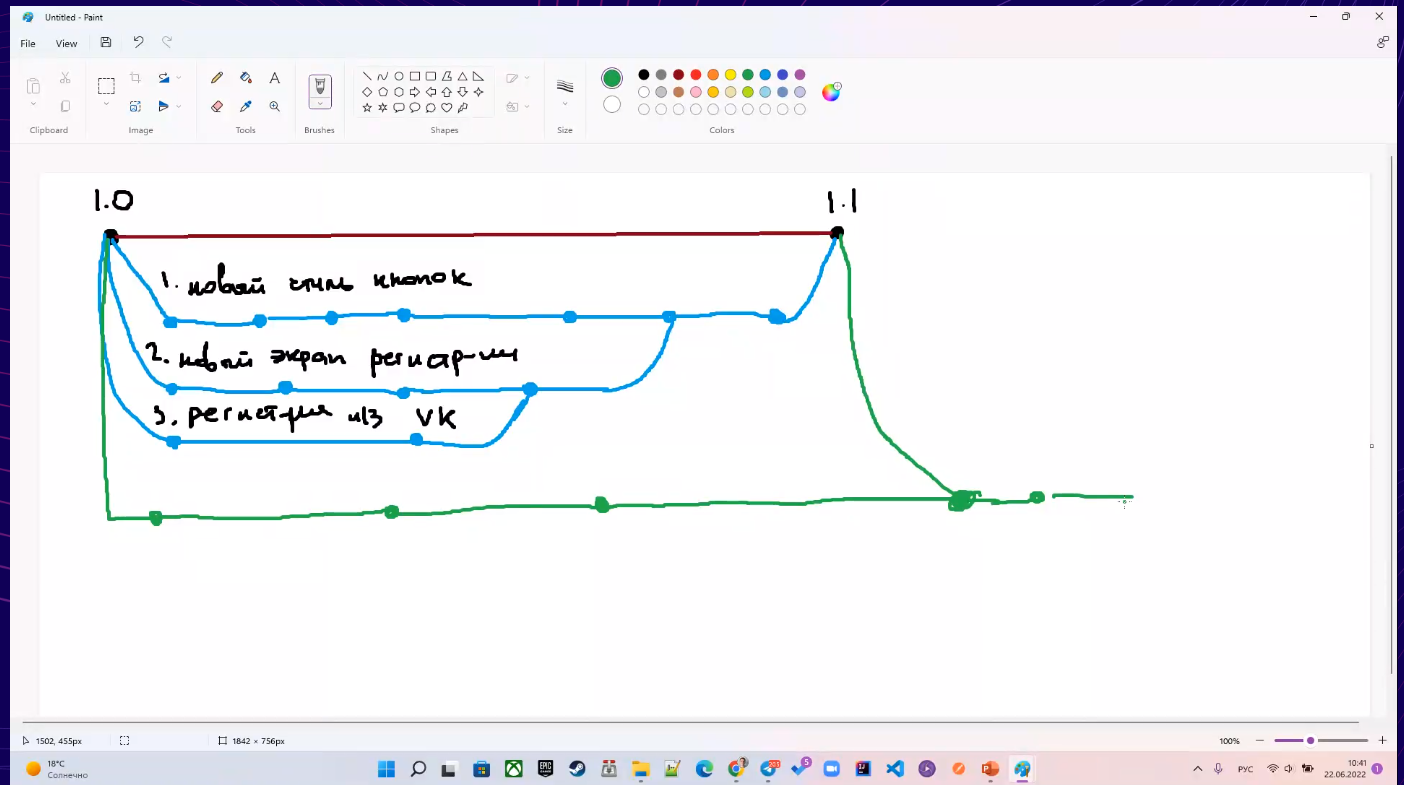 Untitled - Paint
File View
Clipboard Image Tools Brushes Shapes Size Colors
1.0 1.1
1. новый стиль кнопок
2. новый экран регистр-ии
3. регистр-ия ч/з VK
1502, 455px 1842 × 756px 100%
18°C
Солнечно
РУС
10:41
22.06.2022